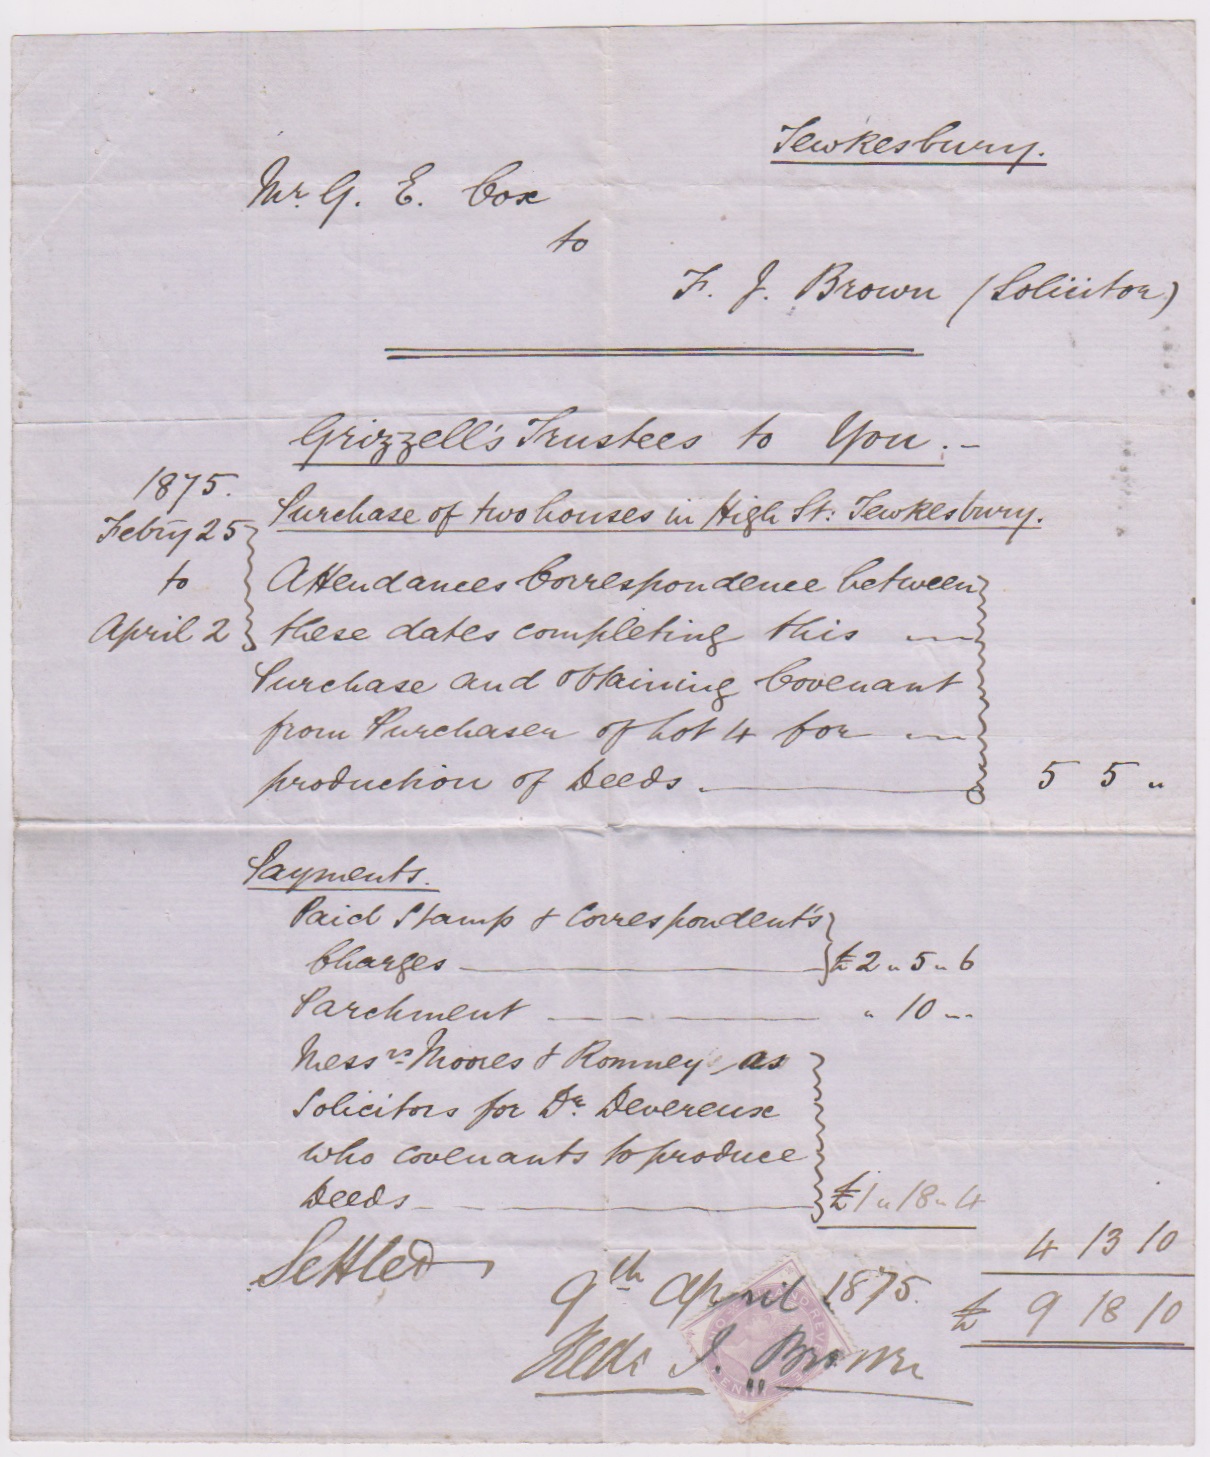 Tewkesbury.
Mr. G. E. Cox
to
F. J. Brown (Solicitor)
Grizzell's Trustees to You:-
1875.
Purchase of two houses in High St: Tewkesbury.
Febry 25
to
April 2
Attendances Correspondence between
these dates completing this
Purchase and obtaining Covenant
from Purchaser of Lot 4 for
production of Deeds. 5 5 "
Payments.
Paid Stamp & Correspondent's
Charges £2 " 5 " 6
Parchment " 10 "
Messrs Moores & Romney as
Solicitors for Dr. Devereux
who covenants to produce
Deeds £1 " 18 " 4
4 13 10
£ 9 18 10
Settled
9th April 1875.
Fredk J. Brown